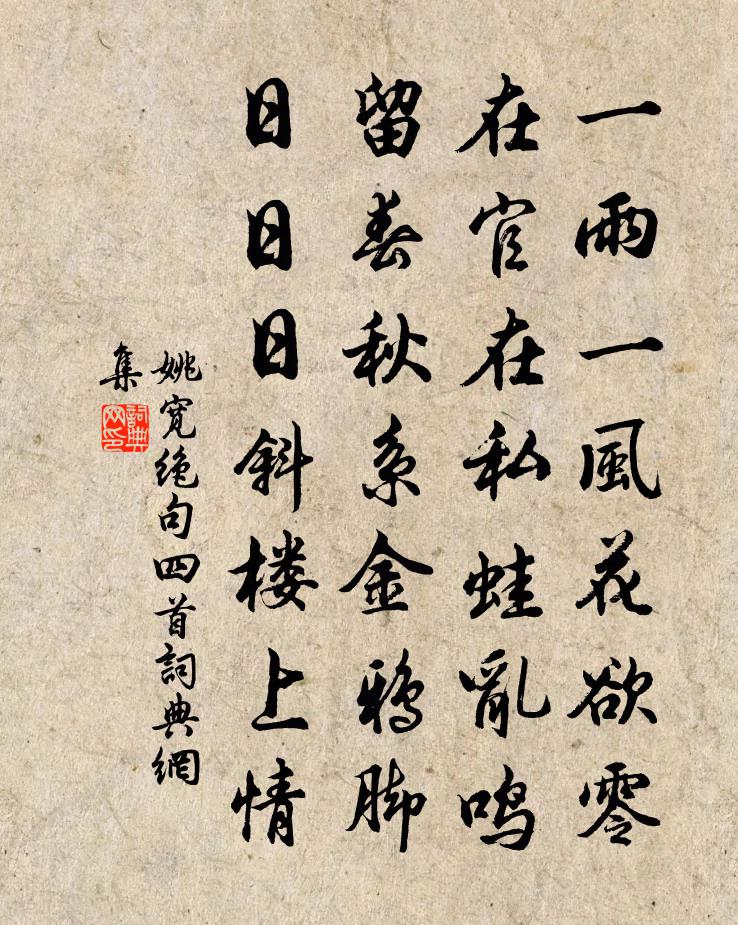 一雨一風花欲零
在官在私蛙亂鳴
留春秋系金鴉脚
日日日斜楼上情
姚寬絶句四首詞典網
集
詞典
网印